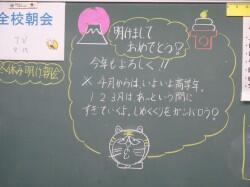 全校朝会
TV
8:15
冬休み明け朝会
明けまして
おめでとう？
今年もよろしく!!
× 4月からは、いよいよ高学年。
1 2 3月は、あっという間に
すぎていくよ。しめくくりをガンバロウ？